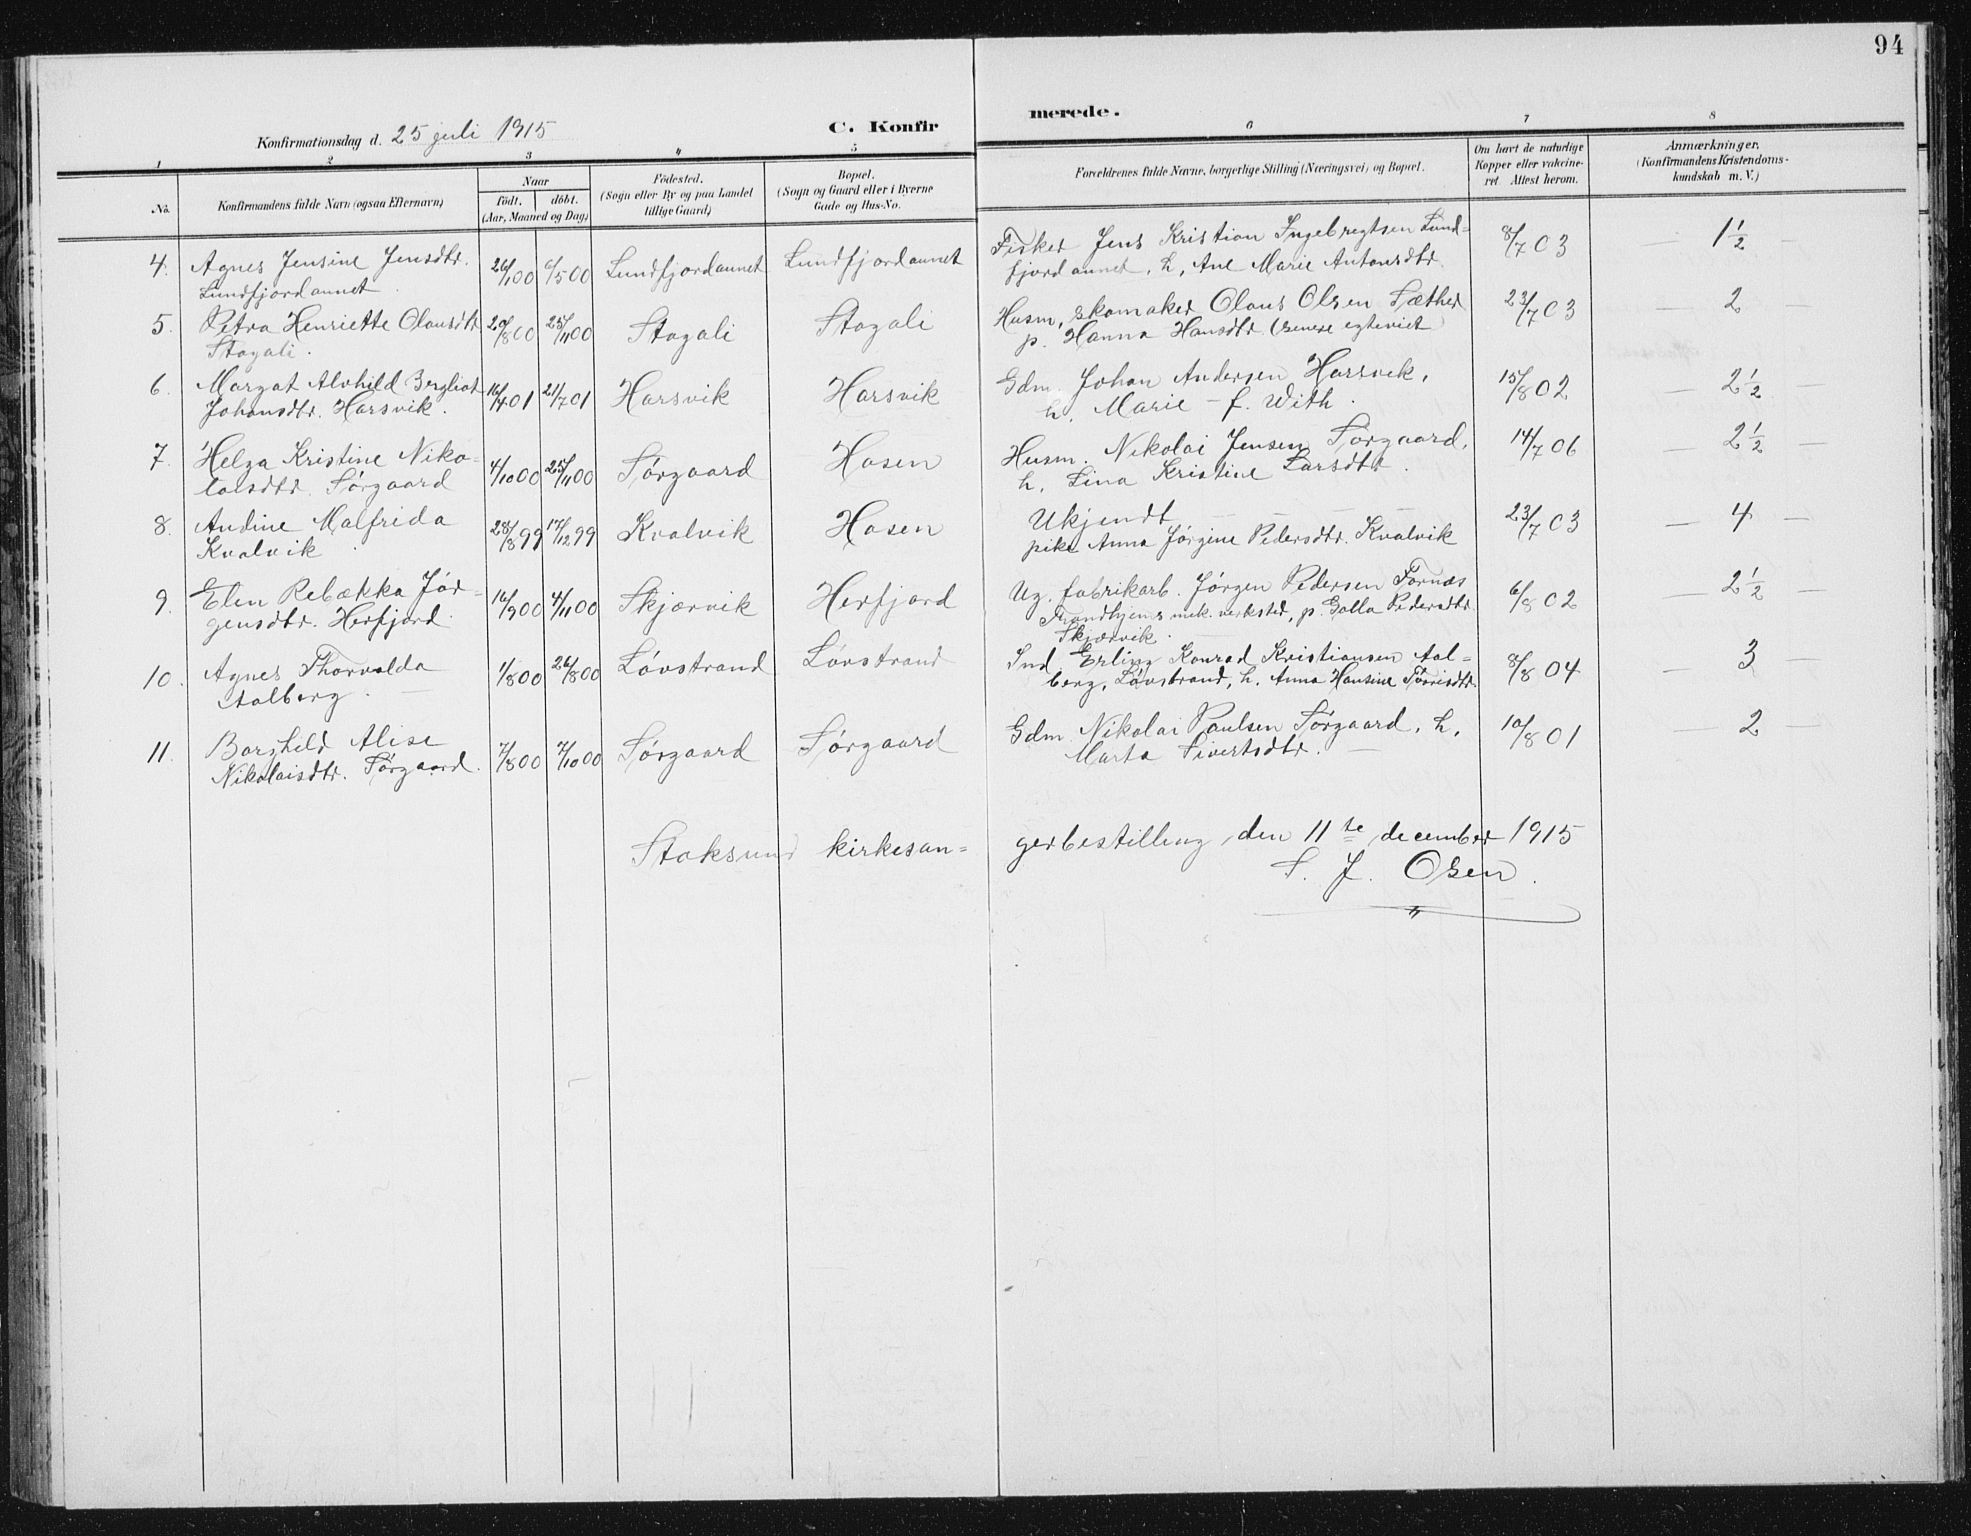 94
C. Konfir merede.
Konfirmationsdag d. 25 juli 1915
1 2 3 4 5 6 7 8
No.
Konfirmandens fulde Navn (ogsaa Efternavn)
Naar
födt. döbt.
(Aar, Maaned og Dag)
Födested.
(Sogn eller By og paa Landet
tillige Gaard)
Bopæl.
(Sogn og Gaard eller i Byerne
Gade og Hus-No.
Forældrenes fulde Navne, borgerlige Stilling (Næringsvei) og Bopæl.
Om havt de naturlige
Kopper eller vakcine-
ret. Attest herom.
Anmærkninger.
(Konfirmandens Kristendoms-
kundskab m. V.)
4. Agnes Jensine Jensdtr. 26/1 00 6/5 00 Lundfjordaunet Lundfjordaunet Fisker Jens Kristian Ingebregtsen Lund- 8/7 03 — 1 1/2 —
Lundfjordaunet. fjordaunet, h, Ane Marie Antonsdtr
5. Petra Henriette Olausdtr 20/8 00 25/11 00 Stogali Stogali Husm, skomaker Olaus Olsen Sæther 23/7 03 — 2 —
Stogali. p. Hanna Hansdtr (senere egteviet)
6. Margat Alvhild Bergliot 16/4 01 21/7 01 Harsvik Harsvik Gdm. Johan Andersen Harsvik, 15/8 02 — 2 1/2 —
Johansdtr. Harsvik. h. Marie – f. With.
7. Helga Kristine Niko- 4/10 00 25/11 00 Sørgaard Hosen Husm. Nikolai Jensen Sørgaard, 14/7 06 — 2 1/2 —
laisdtr. Sørgaard h. Lina Kristine Larsdtr.
8. Andine Malfrida 28/8 99 17/12 99 Kvalvik Hosen Ukjendt — — — 23/7 03 — 4 —
Kvalvik pike Anna Jørgine Pedersdtr. Kvalvik
9. Elen Rebækka Jør- 16/9 00 4/11 00 Skjærvik Herfjord Ug. fabrikarb. Jørgen Pedersen Fornæs 6/8 02 — 2 1/2 —
gensdtr. Herfjord. Trondhjems mek. verksted, p. Golla Pedersdtr.
Skjærvik.
10. Agnes Thorvalda 1/8 00 26/8 00 Løvstrand Løvstrand Ind. Erling Konrad Kristiansen Aal- 8/8 04 — 3 —
Aalberg. — berg, Løvstrand, h. Anna Hansine
11. Borghild Alise 7/8 00 7/10 00 Sørgaard Sørgaard Gdm. Nikolai Paulsen Sørgaard, h, 10/8 01 — 2 —
Nikolaisdtr. Sørgaard. Marta Sivertsdtr.
Stoksund kirkesan- gerbestilling, den 11te december 1915
S. J. Osen.